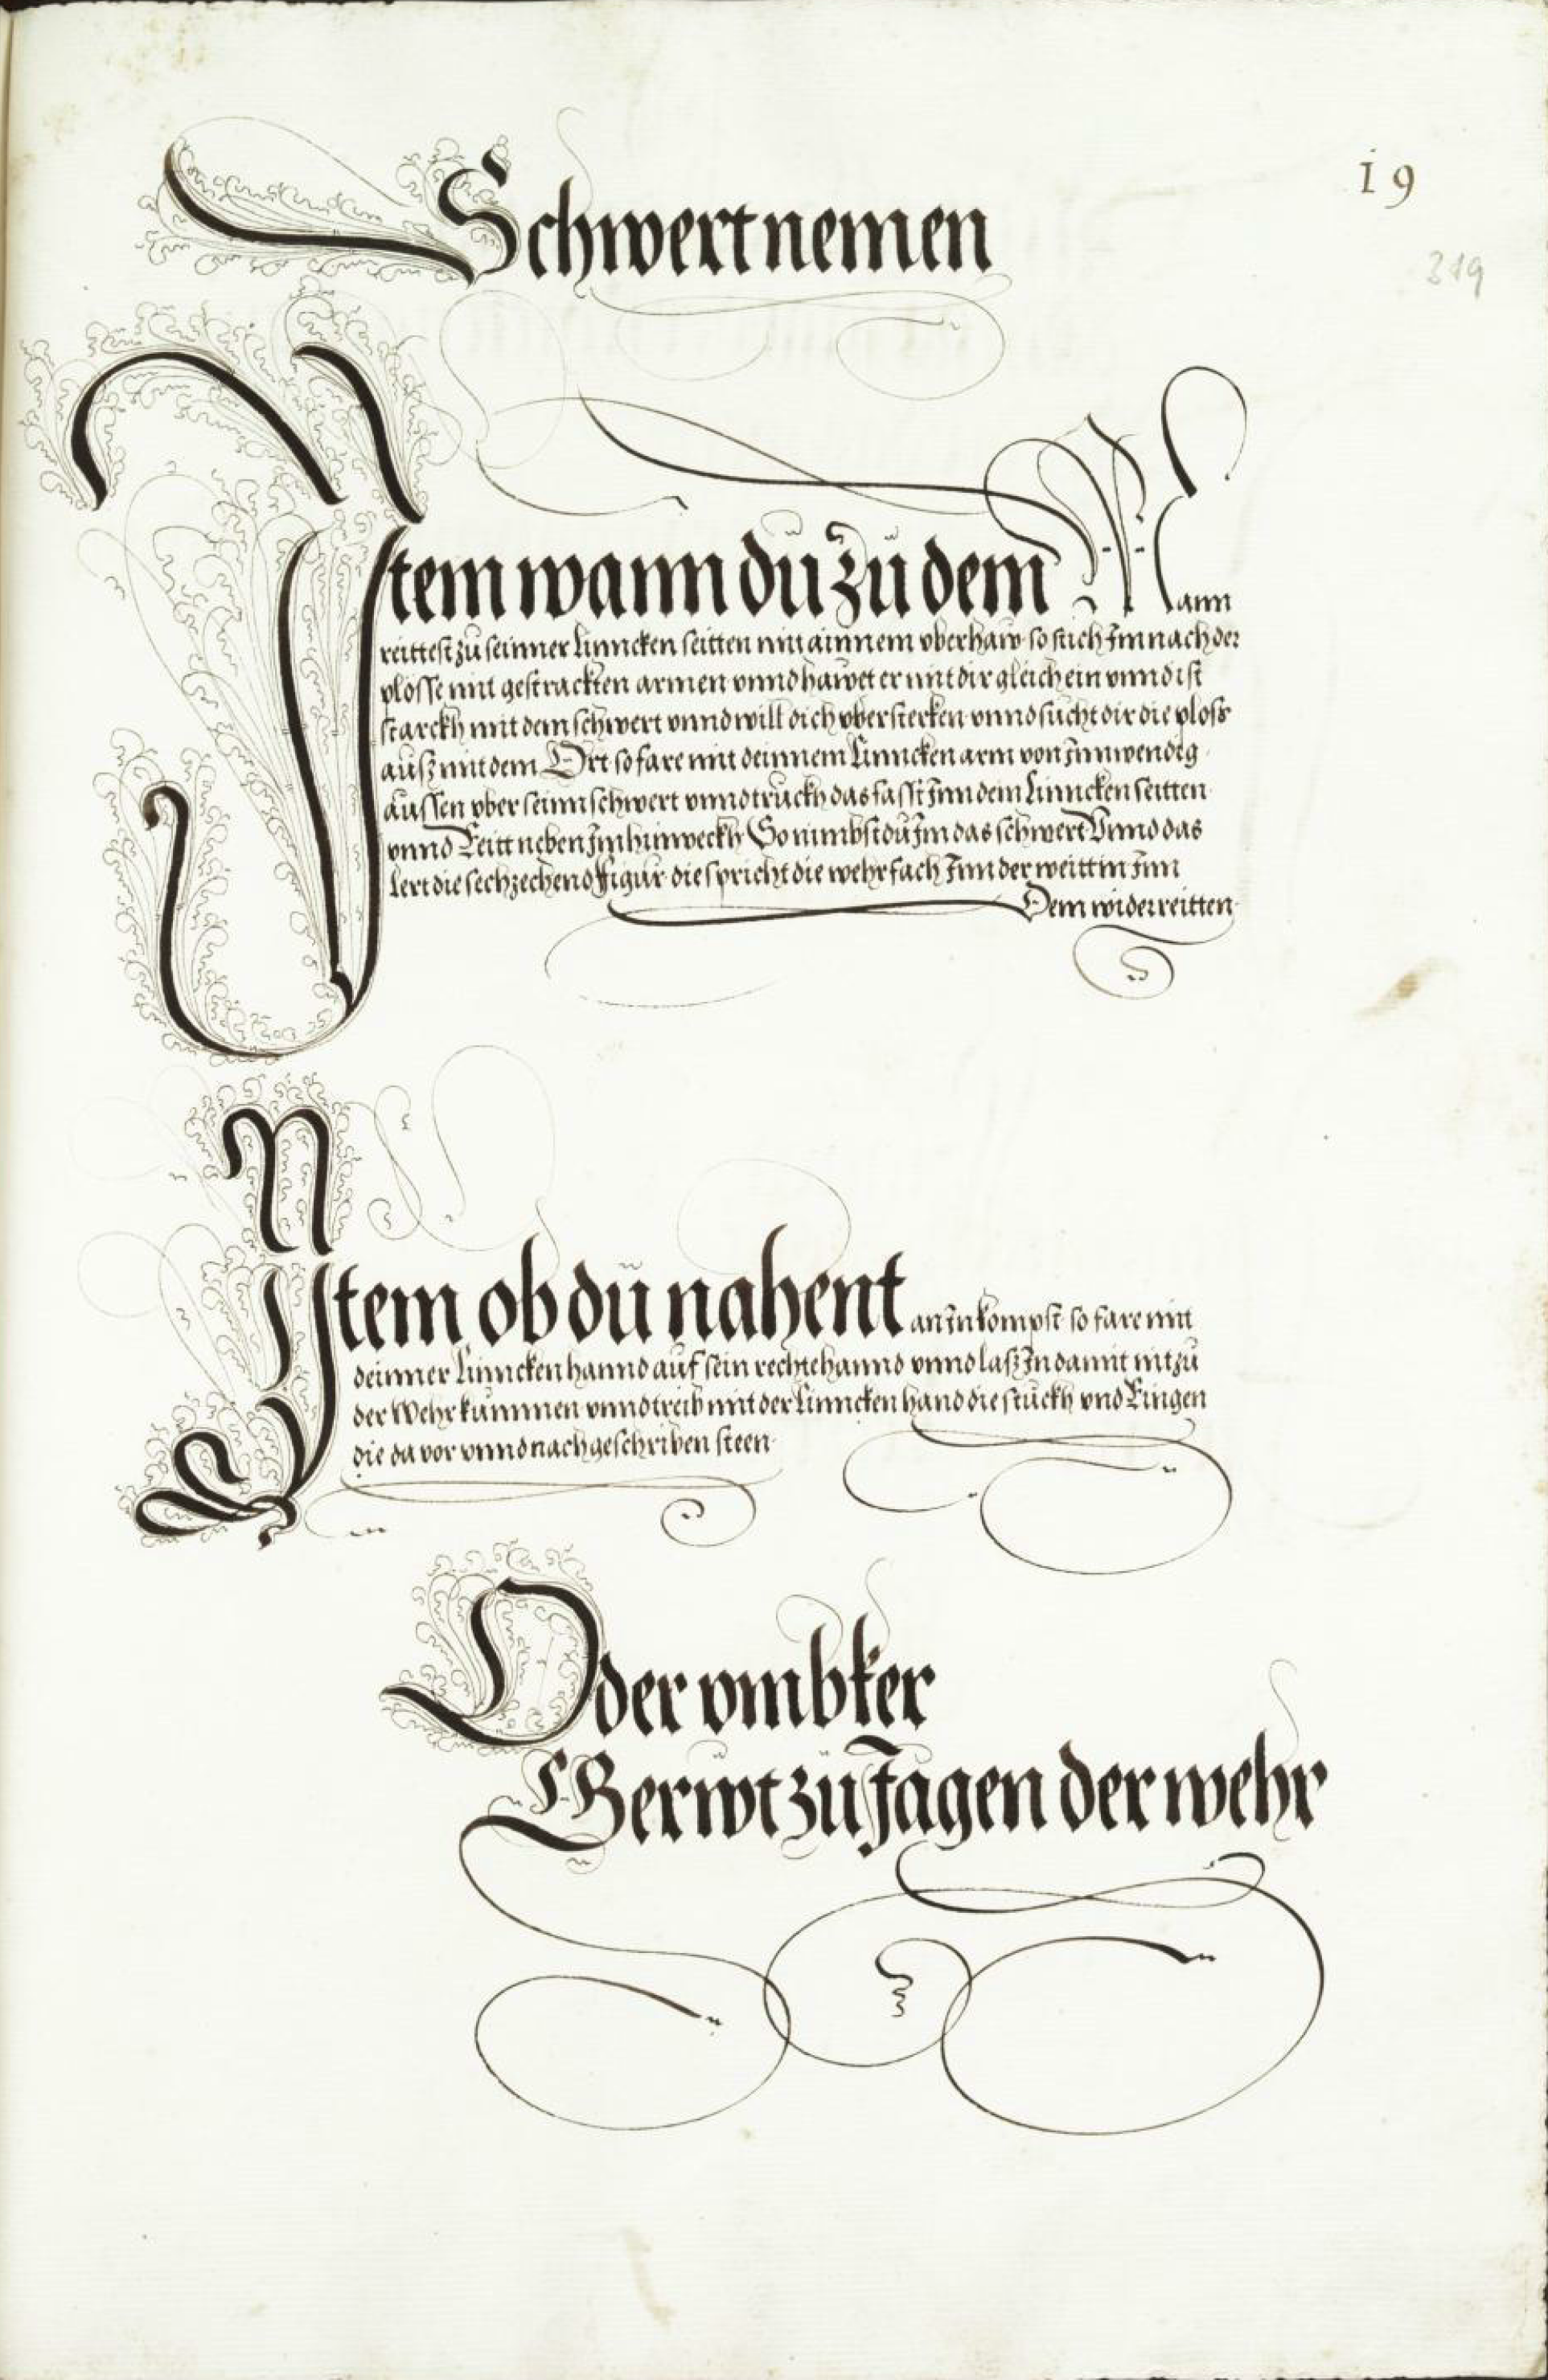 19
319
Schwert nemen
Item wann dü zü dem Mann
reittest zü seinner linncken seitten mit ainnem oberhaw so stich Im nach der
plosse mit gestrackten armen vnnd hawet er mit dir gleich ein vnnd ist
starckh mit dem schwert vnnd will dich vber stercken vnnd sücht dir die plosß
auß mit dem Ort so fare mit deinnem linncken arm von Innwendig
aussen vber seinn schwert vnnd truckh das fasst Inn dein linncken seitten
vnnd Reitt neben Im hinweckh So nimbst dü Im das schwert Vnnd das
lert die sechzechend figur die spricht die wehr fach Inn der weitt in Inn
Dem wider reitten
Item ob dü nahent an In kompst so fare mit
deinner linncken hannd auf sein rechte hannd vnnd laß In damit nit zü
der Wehr kummen vnnd treib mit der linncken hand die stückh vnd Ringen
die da vor vnnd nach geschriben steen
Oder vmbker
Gerüt zü Jagen der wehr